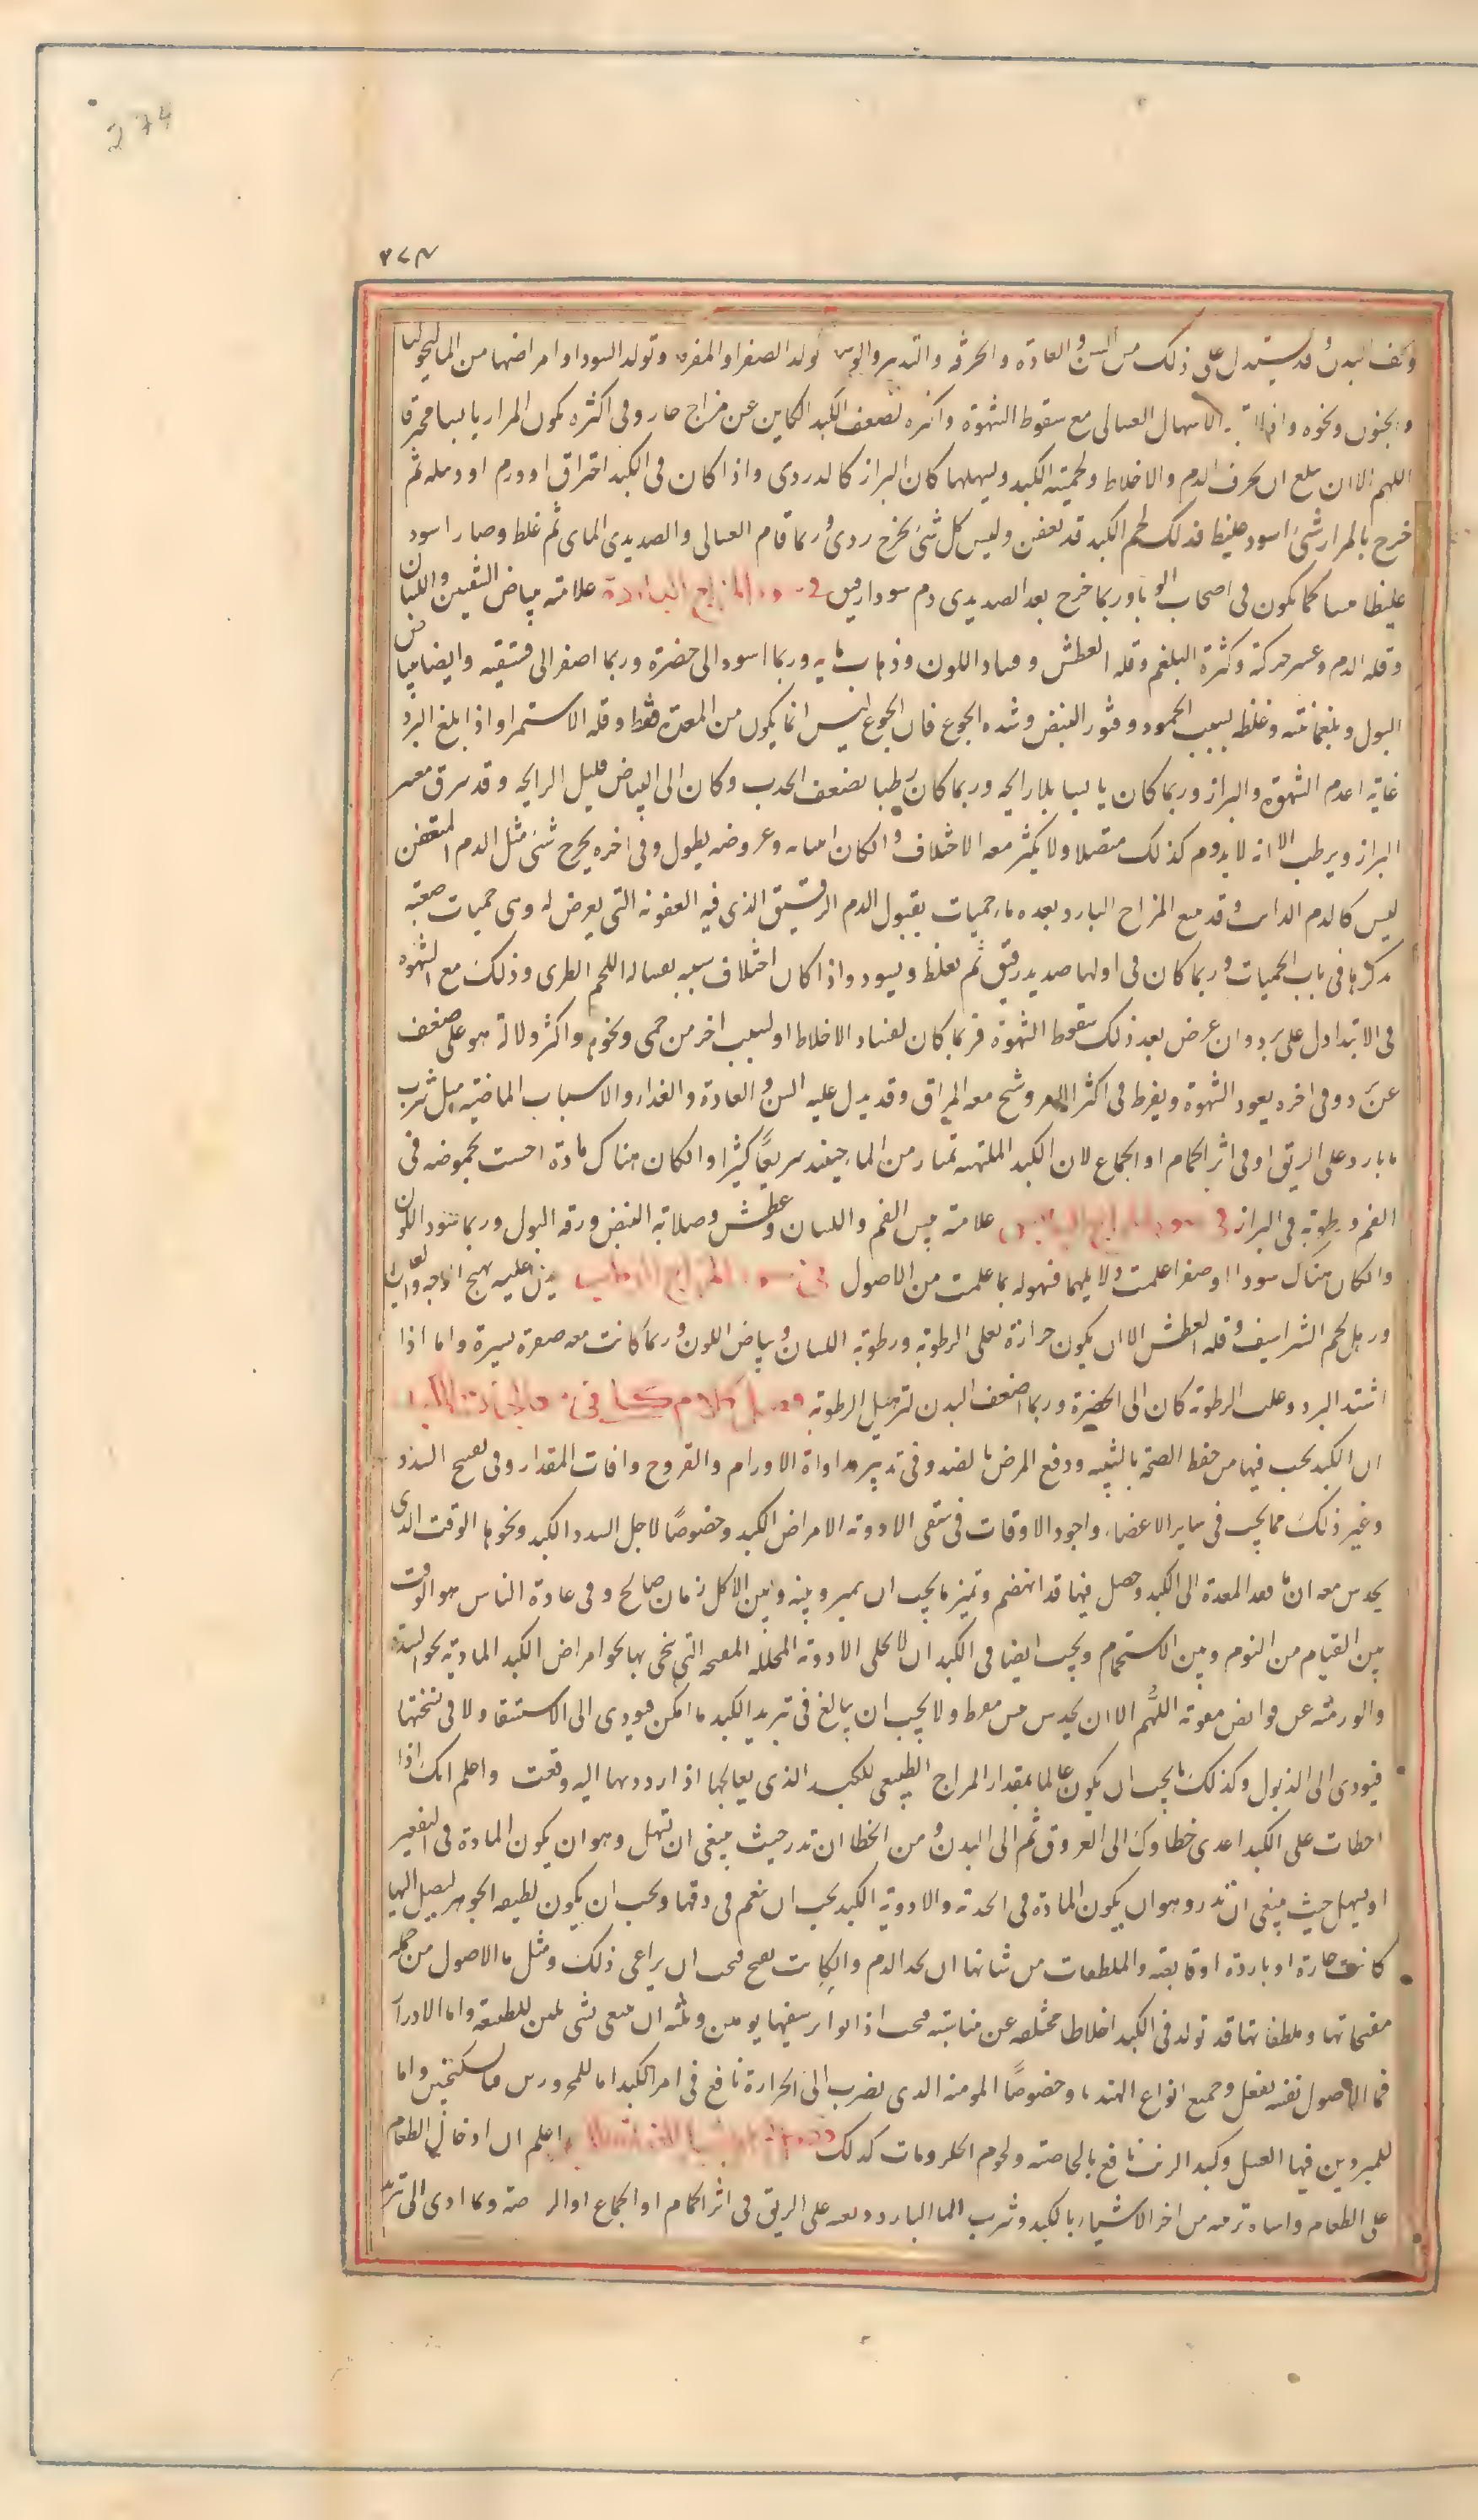 274
٢٧٤
وقد يستدل على ذلك من السن والعادة والحرفة والتدبير تولد الصفرا والمفرط وتولد السودا وامراضها من الماليخوليا
والجنون ونحوه الاسهال الغسالى مع سقوط الشهوة واكثره لضعف الكبد الكاين عن مزاج حار وفى اكثره يكون المرار يابسا محترقا
اللهم الا ان يبلغ ان يحرف الدم والاخلاط ولحمية الكبد ويسهلها كان البراز كالدردى واذا كان فى الكبد احتراق او ورم او دبيله ثم
خرج بالمرار شئ اسود غليظ فذلك لحم الكبد قد تعفن وليس كل شئ يخرج ردى وربما قام الغسالى والصديدى الماى ثم غلظ وصار اسود
غليظا كما يكون فى اصحاب الوبا وربما خرج بعد الصديدى دم سودا رقيق فى سوء المزاج البارد علامته بياض الشفتين واللسان
وقله الدم وعسر حركته وكثرة البلغم وقله العطش وفساد اللون وذهاب مايه وربما اسود الى خضرة وربما اصفر الى فستقيه وايضا بياض
البول وبلغمانيته وغلظه لسبب الجمود وفتور النبض وشده الجوع فان الجوع ليس انما يكون من المعدة فقط وقله الاستمرا واذا بلغ البرد
غايه اعدم الشهوة والبراز وربما كان يابسا بلا رايحه وربما كان رطبا لضعف الجذب وكان الى البياض قليل الرايحه وقد يرق معه
البراز ويرطب الا انه لا يدوم كذلك متصلا ولا يكثر معه الاختلاف والكان وعروضه يطول وفى اخره يخرج شئ مثل الدم المتعفن
ليس كالدم الذايب وقد يتبع المزاج البارد بعده ما حميات بقبول الدم الرقيق الذى فيه العفونه التى يعرض له وهى حميات صعبه
نذكرها فى باب الحميات وربما كان فى اولها صديد رقيق ثم يغلظ ويسود واذا كان اختلاف شبيه بغساله اللحم الطرى وذلك مع الشهوه
فى الابتدا دل على برد وان عرض بعد ذلك سقوط الشهوة فربما كان لفساد الاخلاط او لسبب اخر من حمى ونحوه واكثر دلالة هو على ضعف
عن برد وفى اخره يعود الشهوة ويفرط فى اكثر الامر وشنج معه المراق وقد يدل عليه السن والعادة والغذاء والاسباب الماضيه مثل شرب
ما بارد على الريق او فى اثر الحمام او الجماع لان الكبد الملتهبه تمتار من الماء حينئذ سريعًا كثيرا والكان هناك مادة احست بحموضه فى
الفم ورطوبه فى البراز فى سوء المزاج اليابس علامته يبس الفم واللسان وعطش وصلابه النبض ورقه البول وربما سود اللون
والكان هناك سودا او صفرا علمت دلايلهما فيهوله بما علمت من الاصول فى سوء المزاج الرطب يدل عليه تهيج الاجه والعين
ورهل لحم الشراسيف وقله العطش الا ان يكون حرارة تغلى الرطوبه ورطوبه اللسان وبياض اللون وربما كانت معه صفرة يسيرة واما اذا
اشتد البرد وغلب الرطوبة كان الى الخضرة وربما اضعف البدن لترهيل الرطوبه فصل كلام كلى فى معالجات الكبد
ان الكبد يجب فيها من حفظ الصحه بالشبيه ودفع المرض بالضد وفى تدبير مداواة الاورام والقروح وافات المقدار وفى تفتيح السدد
وغير ذلك مما يجب فى ساير الاعضاء واجود الاوقات فى سقى الادويه الامراض الكبد وخصوصًا لاجل السدد الكبد ونحوها الوقت الذى
يحدس معه ان ما نفذ المعدة الى الكبد وحصل فيها قد انهضم وتميز ما يجب ان يتميز وبينه وبين الاكل زمان صالح وفى عادة الناس هو الوقت
بين القيام من النوم وبين الاستحمام ويجب ايضا فى الكبد ان لا يخلى الادويه المحلله المفتحه التى ينحى بها نحو امراض الكبد الماديه نحو السدد
والورميه عن قوابض مقويه اللهم الا ان يحدس من مفرط ولا يجب ان يبالغ فى تبريد الكبد ما امكن فيودى الى الاستسقا ولا فى تسخنها
فيودى الى الذبول وكذلك ما يجب ان يكون عالما بمقدار المزاج الطبيعى للكبد الذى يعالجها اذا ردها اليه وقعت واعلم انك اذا
اخطات على الكبد اعدى خطاوك الى العروق ثم الى البدن ومن الخطا ان تدر حيث ينبغى ان تسهل وهو ان يكون المادة فى التقعير
او يسهل حيث ينبغى ان تدر وهو ان يكون المادة فى الحدبه والادوية الكبد يجب ان ينعم فى دقها ويجب ان يكون لطيفه الجوهر ليصل اليها
كانت حارة او باردة او قابضه والملطفات من شانها ان تحد الدم والكانت تفتح فيجب ان يراعى ذلك ومثل ما الاصول من جمله
مفتحاتها وملطفاتها قد تولد فى الكبد اخلاطا مختلفه عن مناسبه فيجب اذا تواتر سقيها يومين وثلثه ان يسقى شى ملين للطبيعة واما الادرار
فما الاصول نفسه يفعل وجميع انواع الهندبا وخصوصًا المومنه الذى يضرب الى الحرارة نافع فى امر الكبد اما للمحرورين فالسكنجبين واما
للمبرودين فيها العسل وكبد الذئب نافع بالخاصيه ولحوم الحلزونات كذلك اعلم ان ادخال الطعام
على الطعام واساءة ترتيبه من اضر الاشياء بالكبد وشرب الما البارد دفعه على الريق فى اثر الحمام او الجماع او الرياضة وبما ادى الى